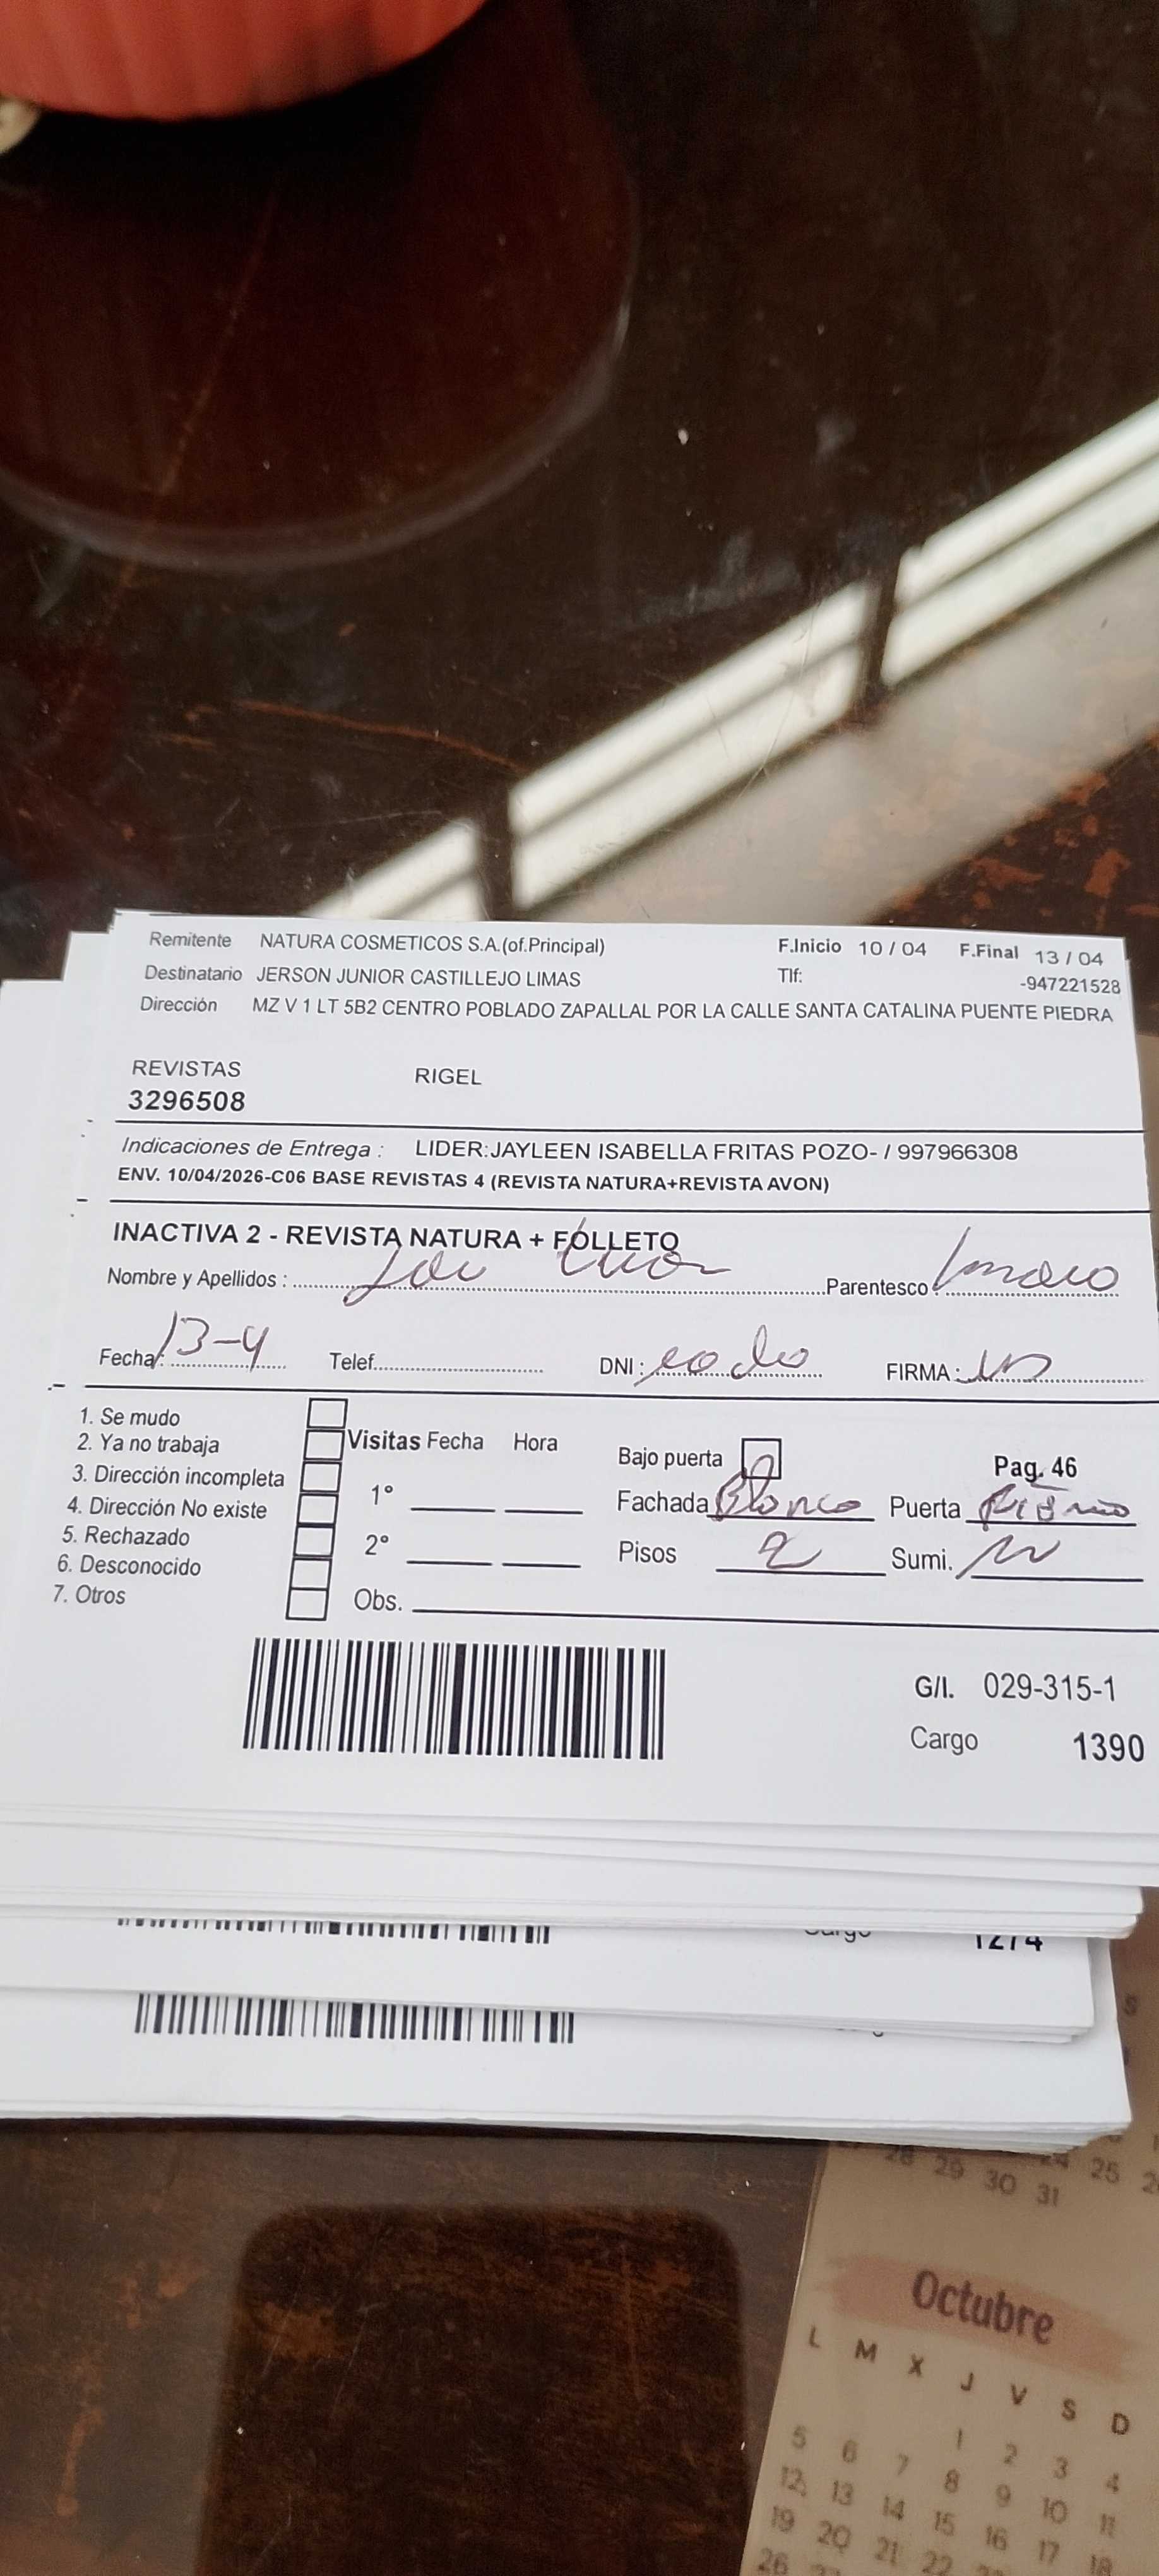 Remitente NATURA COSMETICOS S.A.(of.Principal) F.Inicio 10 / 04 F.Final 13 / 04
Destinatario JERSON JUNIOR CASTILLEJO LIMAS Tlf: -947221528
Dirección MZ V 1 LT 5B2 CENTRO POBLADO ZAPALLAL POR LA CALLE SANTA CATALINA PUENTE PIEDRA
REVISTAS RIGEL
3296508
Indicaciones de Entrega : LIDER:JAYLEEN ISABELLA FRITAS POZO- / 997966308
ENV. 10/04/2026-C06 BASE REVISTAS 4 (REVISTA NATURA+REVISTA AVON)
INACTIVA 2 - REVISTA NATURA + FOLLETO
Nombre y Apellidos : Parentesco :
Fecha: 13-4 Telef. DNI : FIRMA :
1. Se mudo
2. Ya no trabaja Visitas Fecha Hora Bajo puerta Pag. 46
3. Dirección incompleta 1° Fachada Blanco Puerta
4. Dirección No existe
5. Rechazado 2° Pisos 2 Sumi.
6. Desconocido
7. Otros Obs.
G/I. 029-315-1
Cargo 1390
Cargo 1274
28 29 30 31
24 25
Octubre
L M X J V S D
1 2 3 4
5 6 7 8 9 10 11
12 13 14 15 16 17 18
19 20 21 22
26